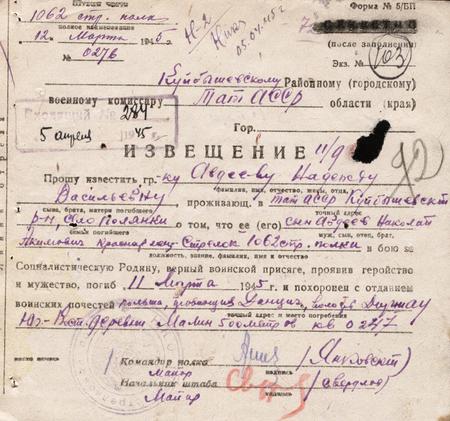 1062 стр. полк
полное наименование
12 Марта 1945 г.
№ 0276
Форма № 5/БП
(после заполнения)
Экз. № 103
05.04.45 г
Куйбышевскому Районному (городскому)
военному комиссару Тат АССР области (края)
Входящий № 284
5 апреля 1945
Гор.
ИЗВЕЩЕНИЕ
Прошу известить гр-ку Авдееву Надежду
фамилия, имя, отчество, жены, отца,
Васильевну проживающ. в Тат АССР Куйбышевский
сына, брата, матери погибшего точный адрес
р-н с/о Полянки о том, что ее (его) сын Авдеев Николай
семьи погибшего муж, сын, отец, брат,
Акимович Красноармеец-Стрелок 1062 стр. полка в бою за
должность, звание, фамилия, имя и отчество
Социалистическую Родину, верный воинской присяге, проявив геройство
и мужество, погиб 11 Марта 1945 г и похоронен с отданием
воинских почестей Польша, Данциг,
точный адрес и место погребения
Юг-Вст. деревни Малин 500 метров кв 0247
Командир полка
Майор
подпись
(Янковский)
Начальник штаба
Майор
подпись
(Свердлов)